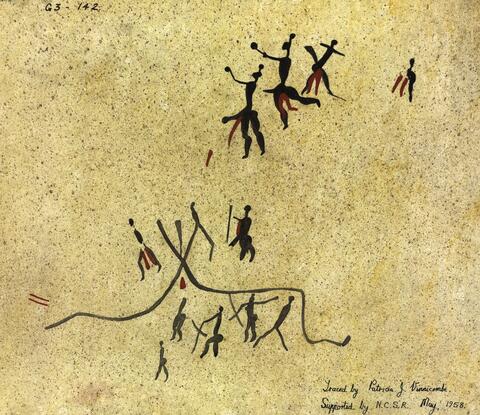 G3 - 142
Traced by Patricia J. Vinnicombe.
Supported by N.C.S.R. May, 1958.